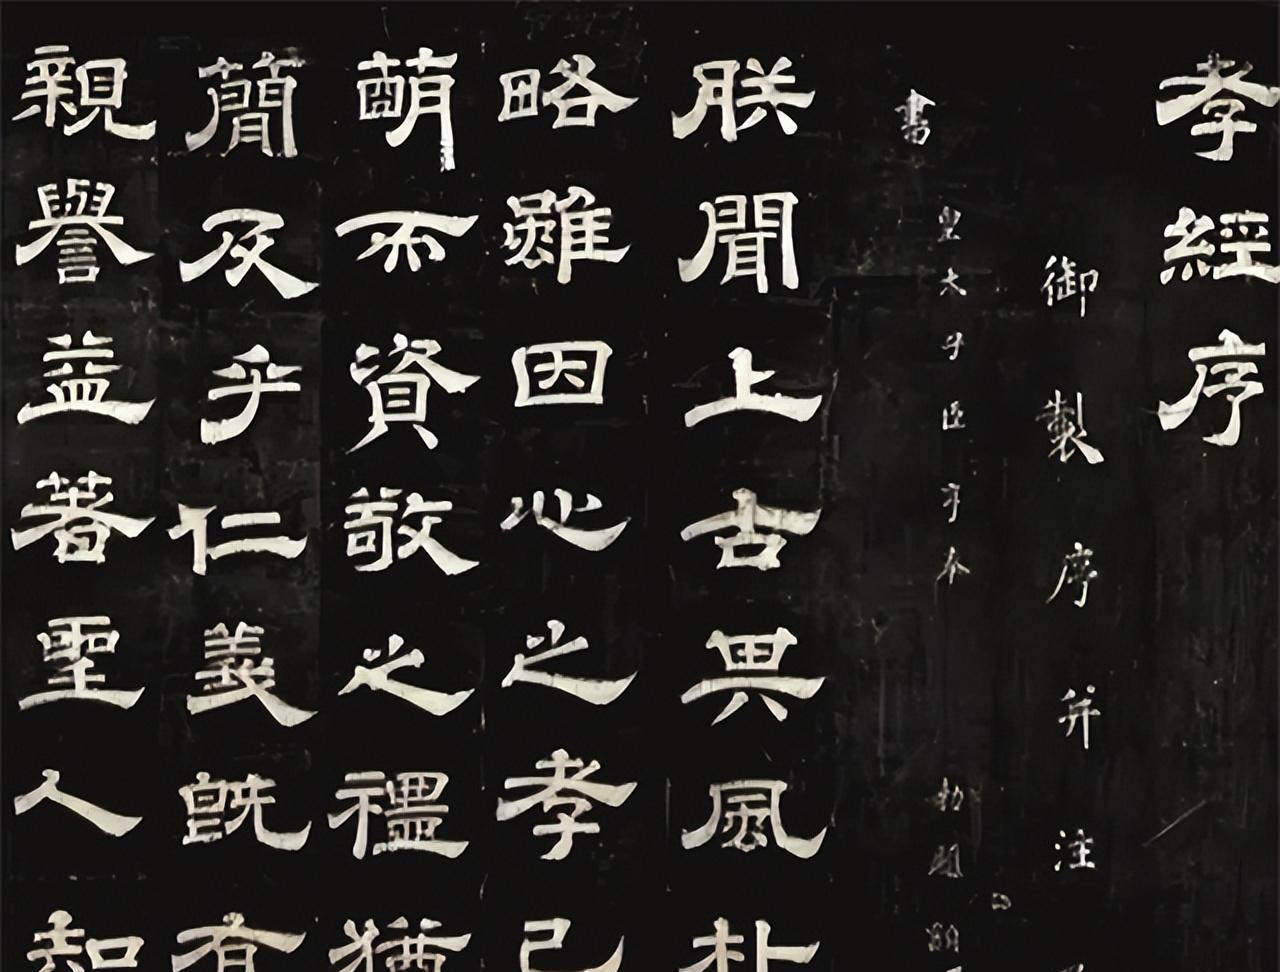 孝經序
御製序并注
皇太子臣亨奉
勅題額
書
朕聞上古其風朴
略雖因心之孝已
萌而資敬之禮猶
簡及乎仁義既有
親譽益著聖人知